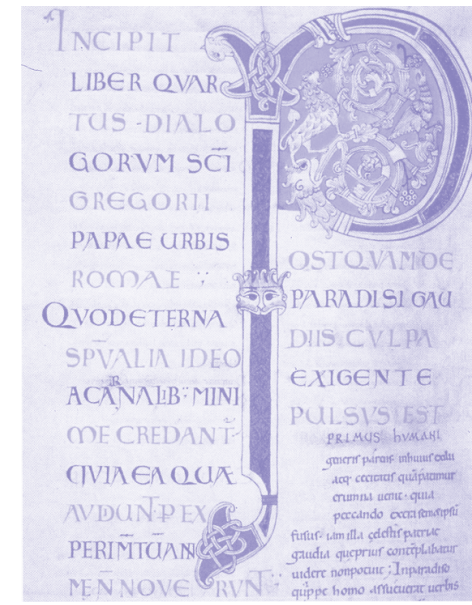 INCIPIT
LIBER QVAR
TUS · DIALO
GORVM SC̄I
GREGORII
PAPAE URBIS
ROMAE
QVOD ETERNA
SPV̄ALIA IDEO
A CARNALIB: MINI
ME CREDANT
QVIA EA QUÆ
AVDUNT P EX
PERIMTŪAN
MEN NOVERVNT
POSTQVAM DE
PARADISI GAU
DIIS CVLPA
EXIGENTE
PULSVS EST
PRIMUS hUMANI
generis parens inhuius exilii
atq; cecitatis quā patimur
erumna uenit · quia
peccando extra semetipsū
fusus · iam illa celestis patriae
gaudia que prius contēplabatur
uidere non potuit · In paradiso
quippe homo assueuerat uerbis